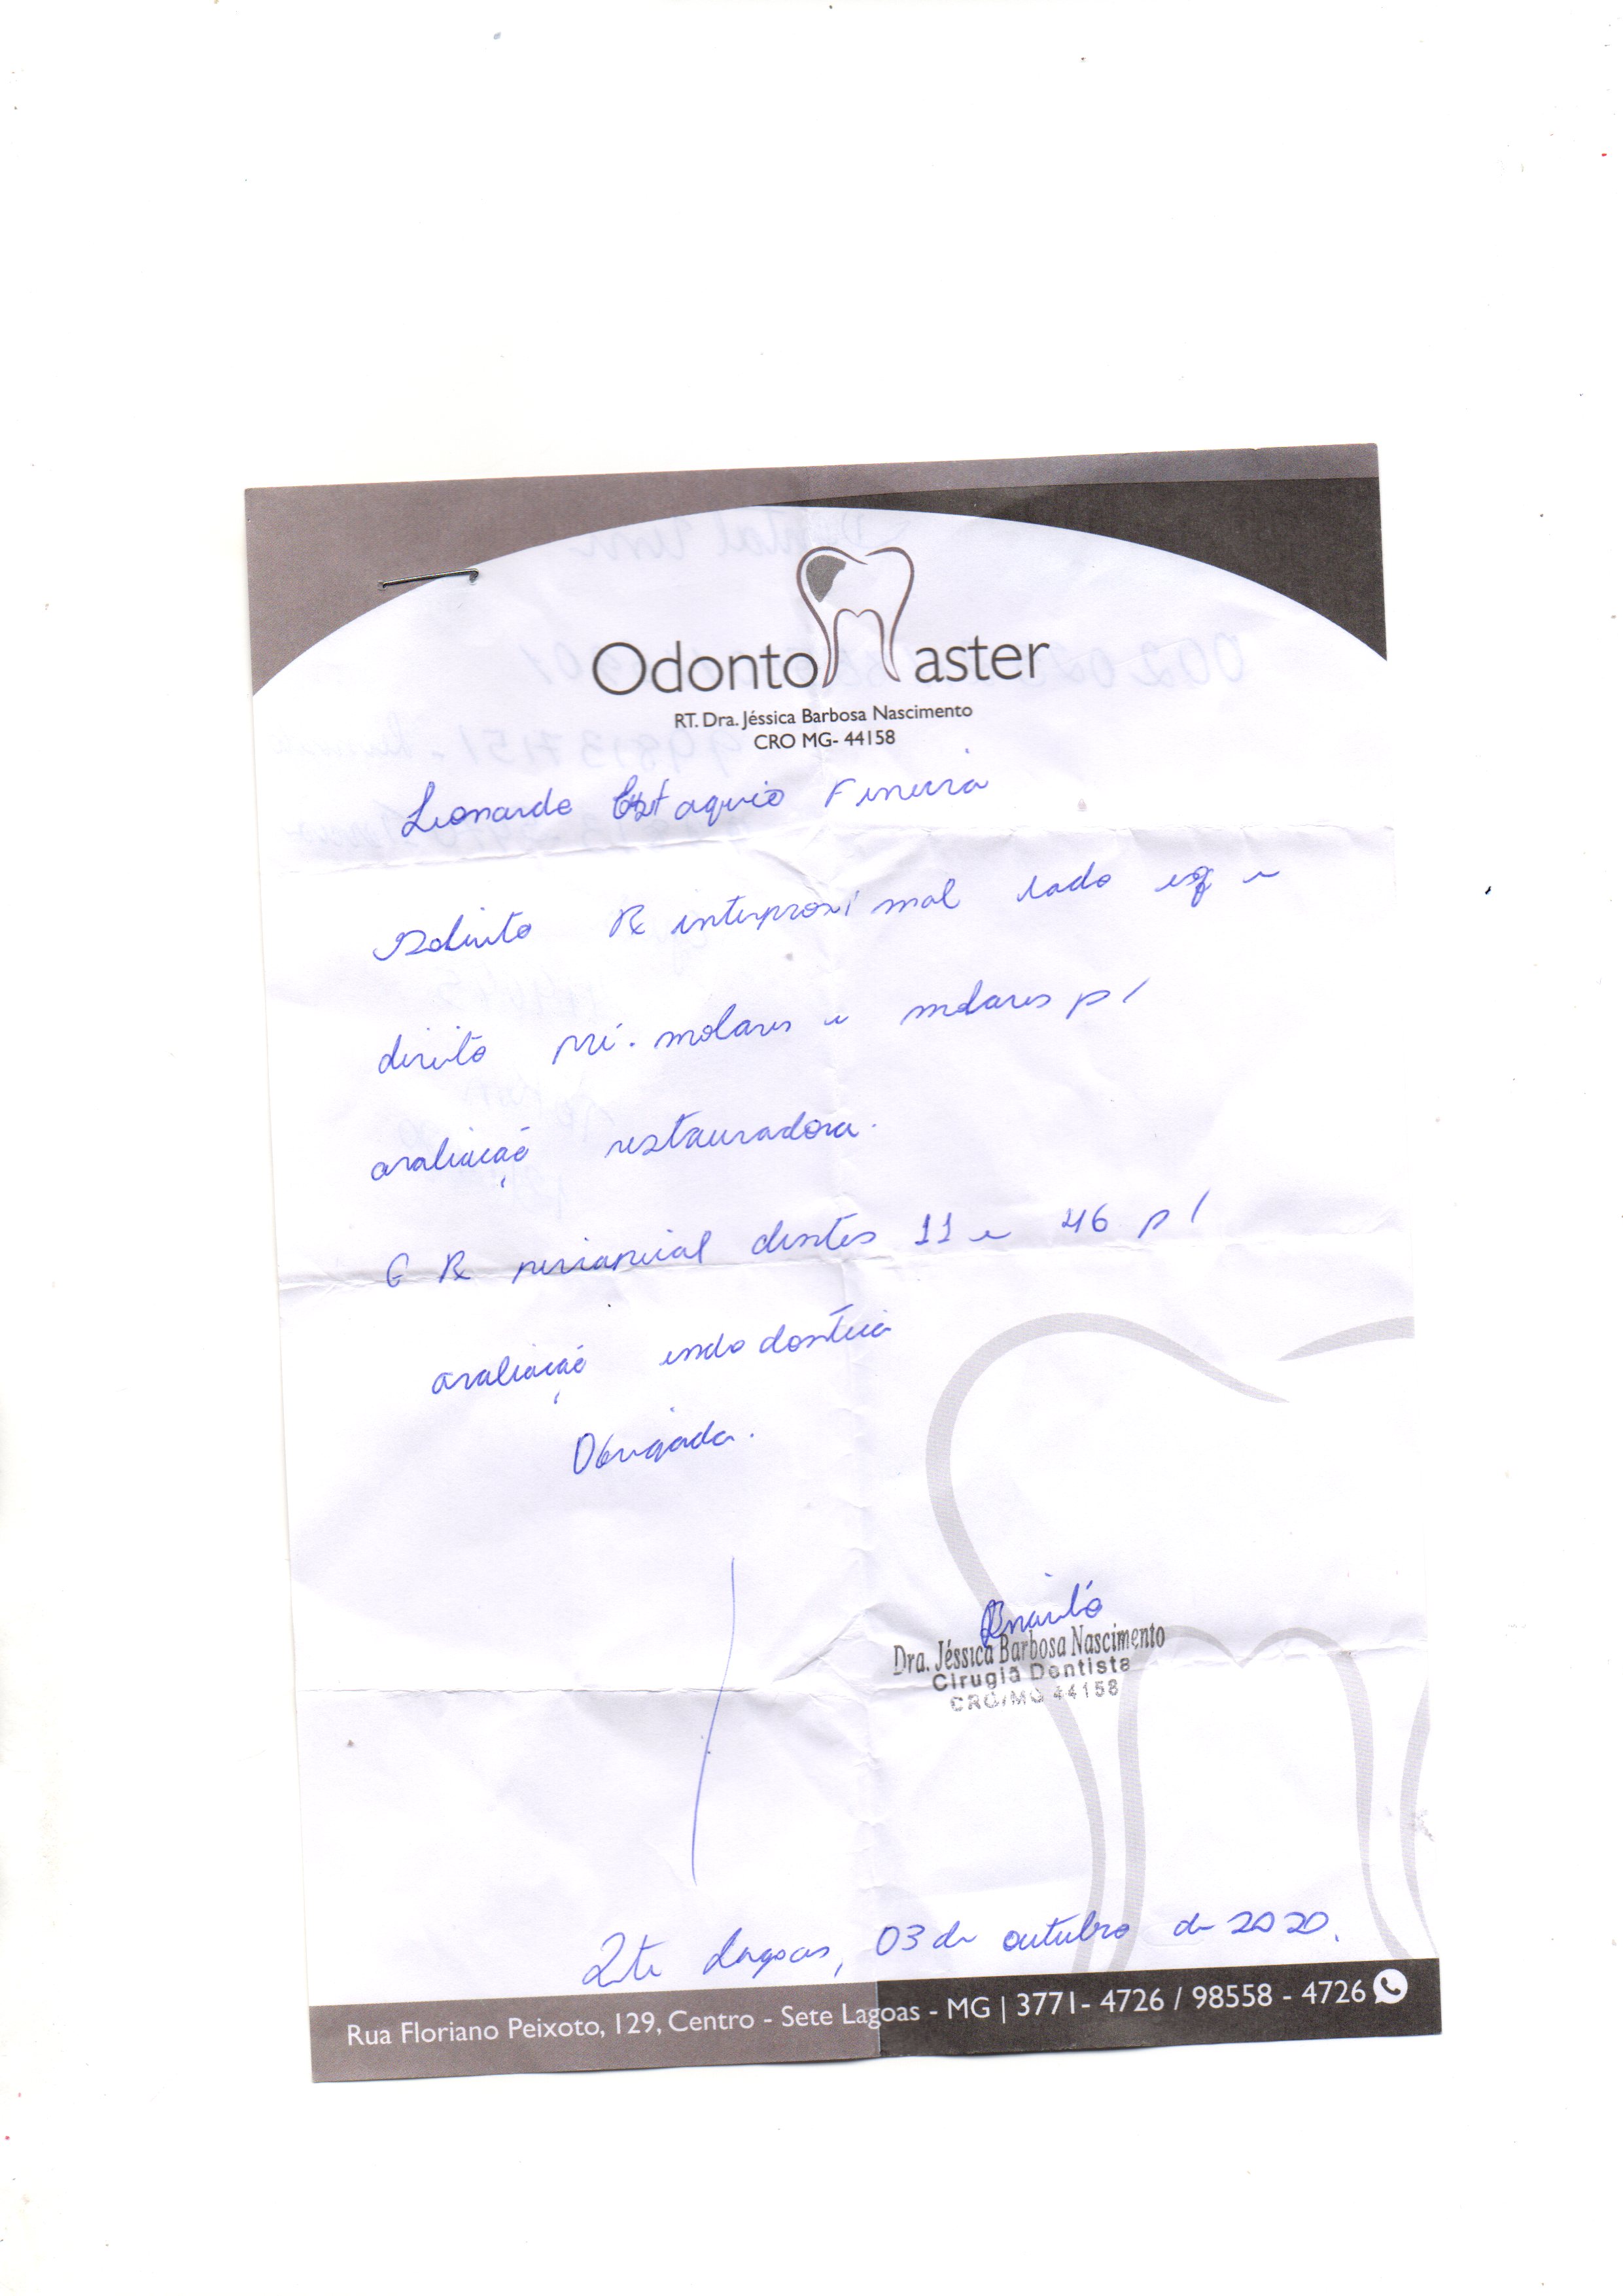 OdontoMaster
RT. Dra. Jéssica Barbosa Nascimento
CRO MG- 44158
Leonardo Eustaquio Ferreira
Solicito Rx interproximal lado esq e
direito pré-molares e molares p/
avaliação restauradora.
E Rx periapical dentes 11 e 46 p/
avaliação endodontica
Obrigada.
Dra. Jéssica Barbosa Nascimento
Cirugiã Dentista
CRO/MG 44158
Sete Lagoas, 03 de outubro de 2020.
Rua Floriano Peixoto, 129, Centro - Sete Lagoas - MG | 3771- 4726 / 98558 - 4726